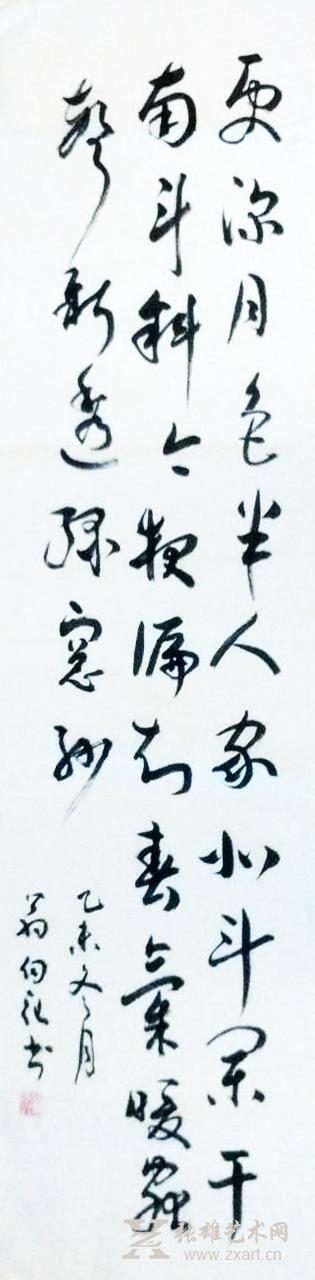 更深月色半人家北斗闌干
南斗斜今夜偏知春氣暖蟲
聲新透綠窗紗
乙未冬月
翁向书
张雄艺术网
www.zxart.cn